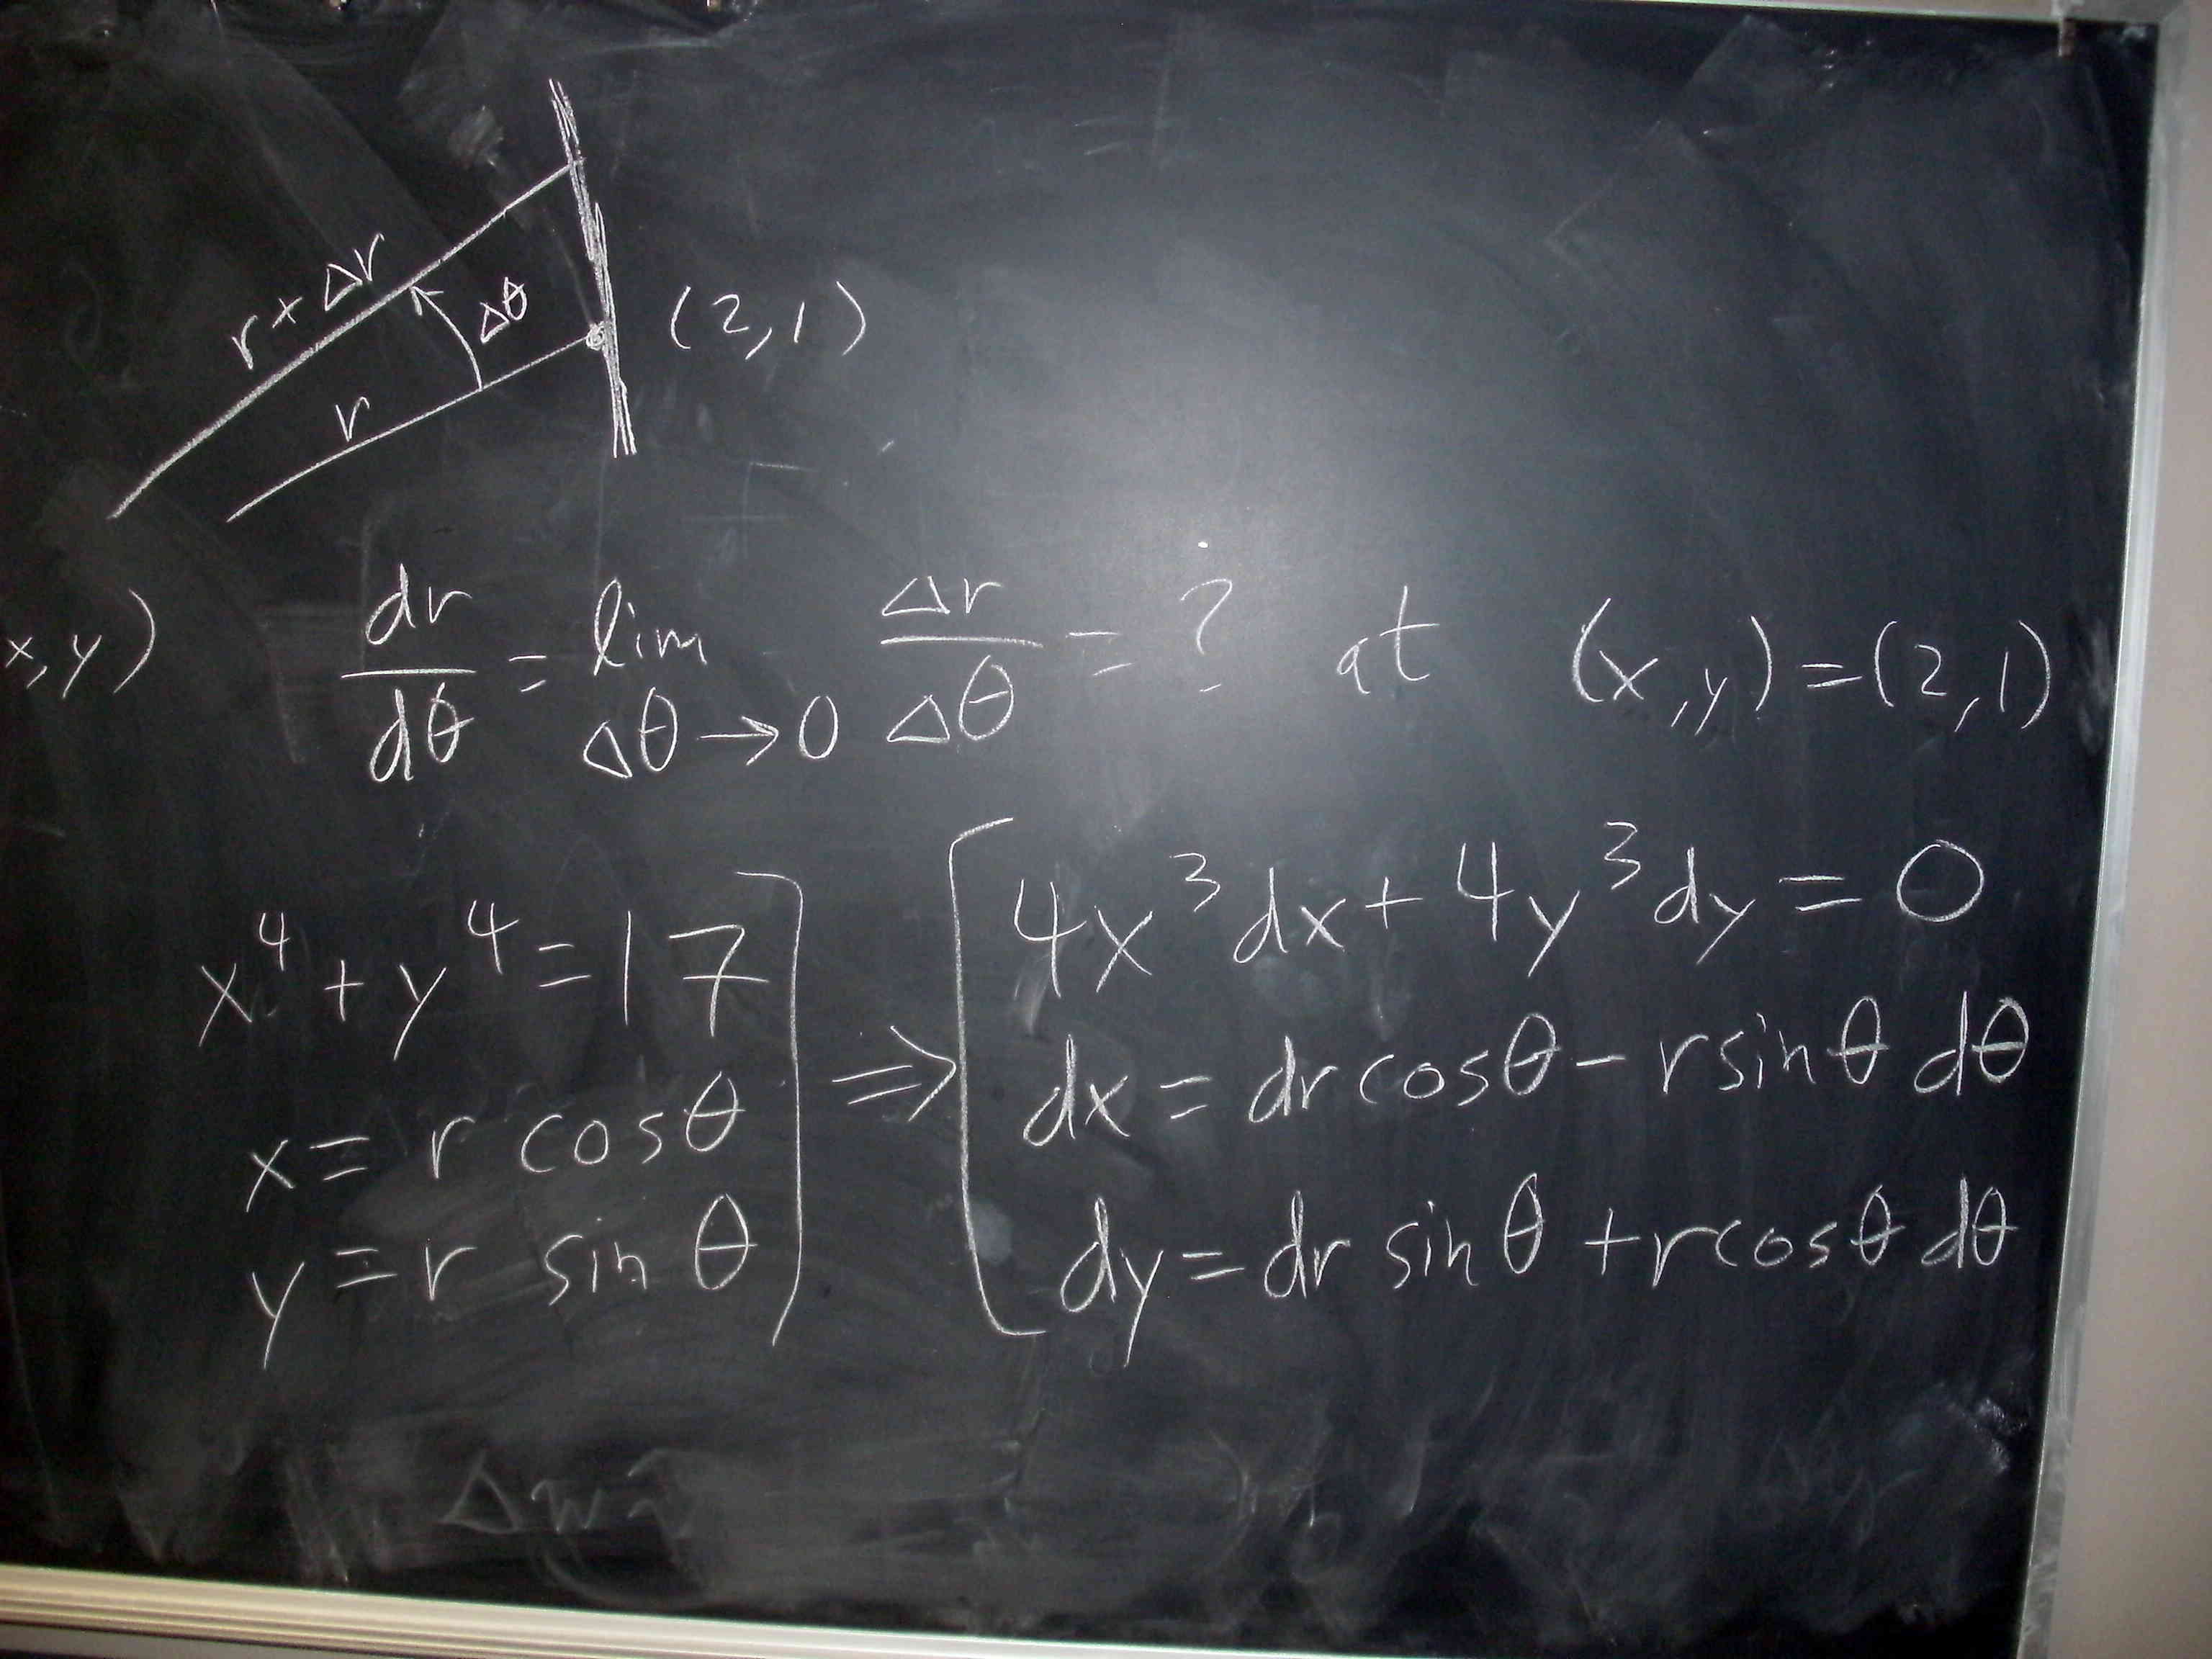 r + Δr
Δθ
r
(2,1)
x,y)
dr/dθ = lim Δθ→0 Δr/Δθ = ? at (x,y)=(2,1)
x⁴ + y⁴ = 17
x = r cosθ
y = r sin θ
⇒
4x³dx + 4y³dy = 0
dx = dr cosθ − r sinθ dθ
dy = dr sinθ + r cosθ dθ
Δw